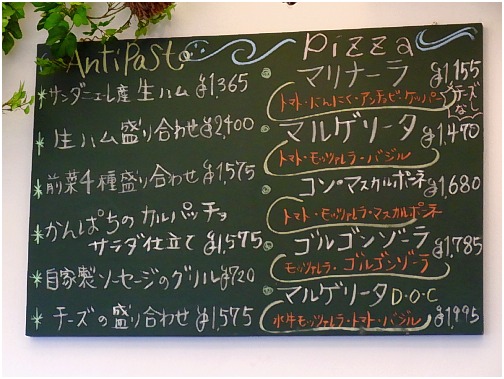 Antipasto
*サンダニエレ産 生ハム ¥1,365
*生ハム盛り合わせ ¥2,400
*前菜4種盛り合わせ ¥1,575
*かんぱちのカルパッチョ
サラダ仕立て ¥1,575
*自家製ソーセージのグリル ¥720
*チーズの盛り合わせ ¥1,575
Pizza
マリナーラ ¥1,155
トマト・にんにく・アンチョビ・ケッパー
チーズなし
マルゲリータ ¥1,470
トマト・モッツァレラ・バジル
コン・マスカルポーネ ¥1,680
トマト・モッツァレラ・マスカルポーネ
ゴルゴンゾーラ ¥1,785
モッツァレラ・ゴルゴンゾーラ
マルゲリータ D・O・C
水牛モッツァレラ・トマト・バジル ¥1,995